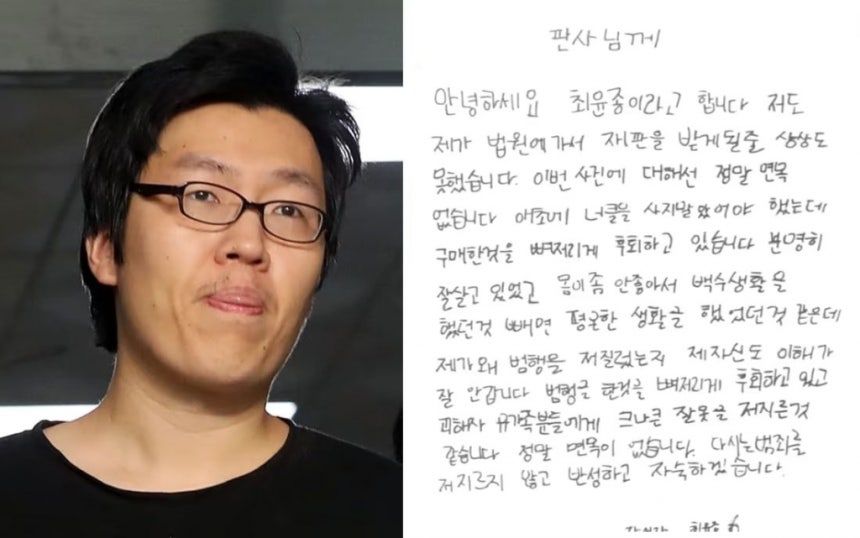 판사님께
안녕하세요 최윤종이라고 합니다 저도
제가 법원에가서 재판을 받게될줄 상상도
못했습니다. 이번 사건에 대해선 정말 면목
없습니다 애초에 너클을 사지말았어야 했는데
구매한것을 뼈저리게 후회하고 있습니다 분명히
잘살고 있었고 몸이좀 안좋아서 백수생활을
했던것 빼면 평균한 생활글 했었던것 같은데
제가왜 범행을 저질렀는지 제자신도 이해가
잘 안갑니다 범행글 한것을 뼈저리게 후회하고 있고
피해자 유가족분들에게 크나큰 잘못글 저지른것
같습니다 정말 면목이 없습니다. 다시는범죄를
저지르지 않고 반성하고 자숙하겠습니다.
작성자 최윤종